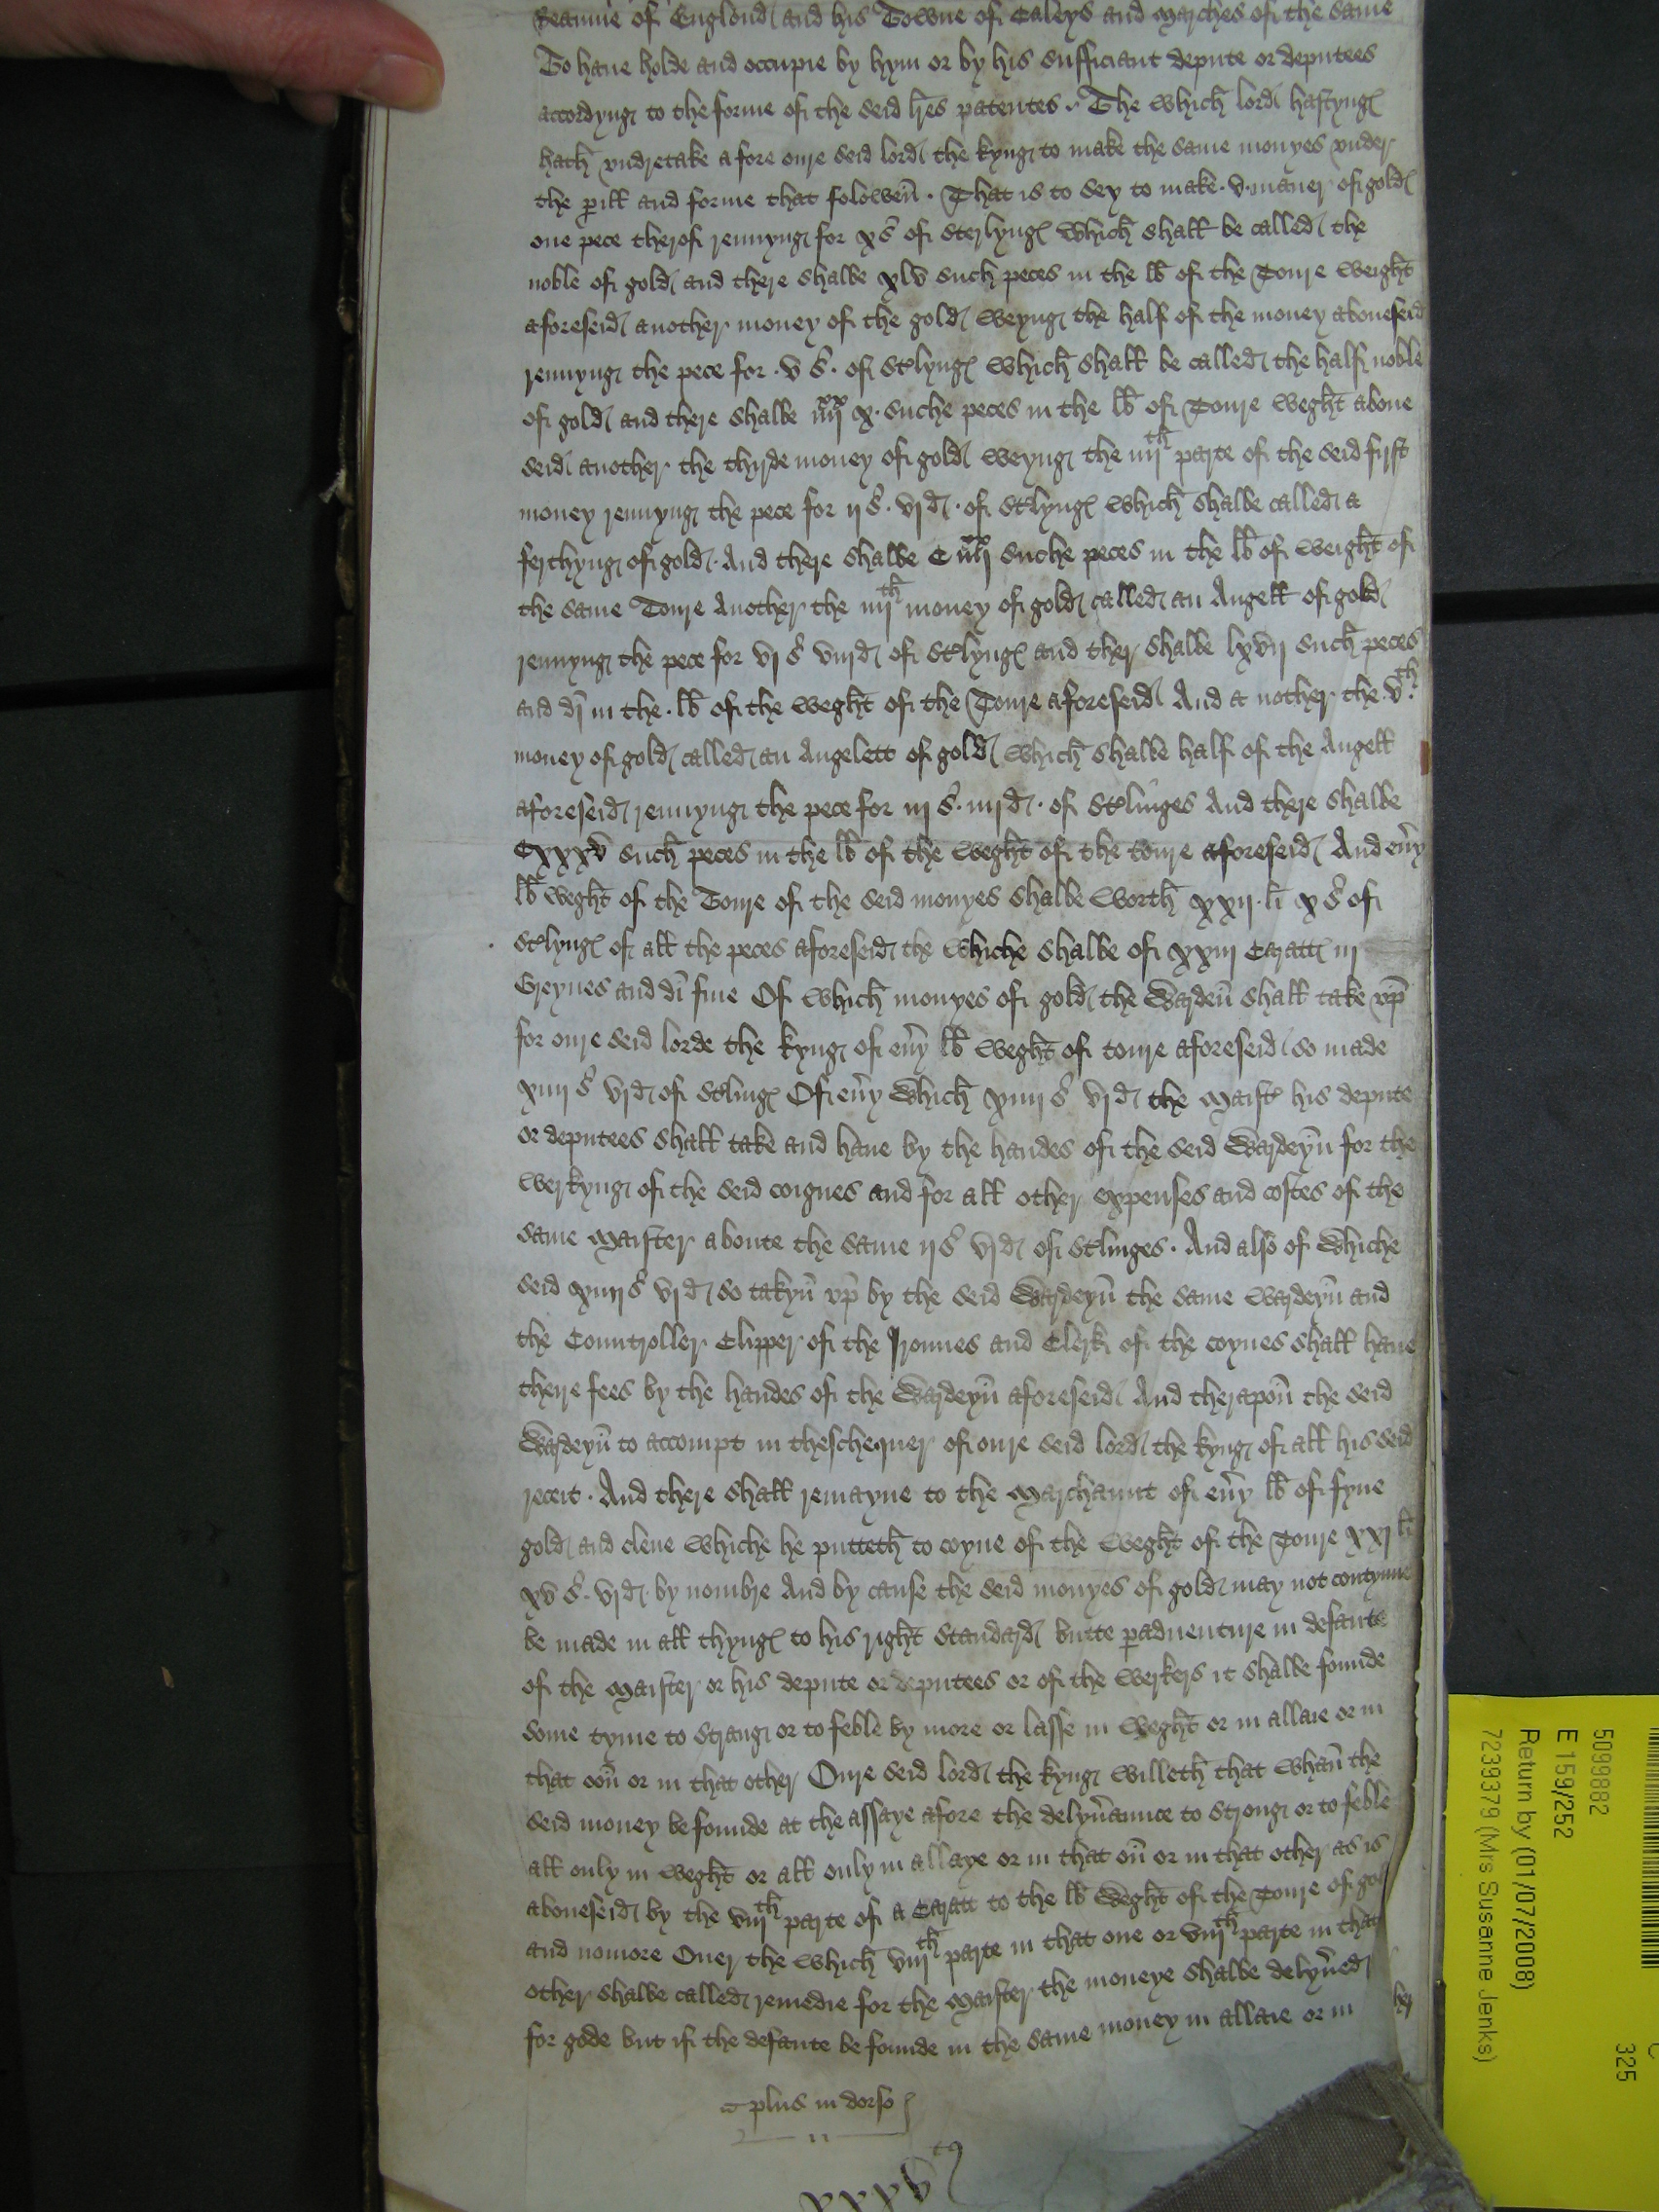 Reaume of Englond and his Towne of Caleys and Marches of the same
To haue holde and occupie by hym or by his sufficiant depute or deputees
accordyng to the forme of the seid lres patentes. The which lord hastyng
hath vndretake afore oure seid lord the kyng to make the same monyes vnder
the pill and forme that folowen. That is to sey to make .v. maner of gold
one pece therof rennyng for xs of sterlyng which shall be called the
noble of gold and there shalbe xlv such peces in the lb of the Toure weight
aforeseid another money of the gold weyng the half of the money aboueseid
rennyng the pece for .v s. of Strlyng which shall be called the half noble
of gold and there shalbe iiijxx x. suche peces in the lb of Toure weght aboue
seid another the thyrde money of gold weyng the iiijth parte of the seid first
money rennyng the pece for ijs. vjd. of Strlyng which shalbe called a
ferthyng of gold. And there shalbe C iiijxx suche peces in the lb of weight of
the same Toure Another the iiijth money of gold called an Angell of gold
rennyng the pece for vj s viijd of Strlyng and ther shalbe lxvij such peces
and di in the. lb of the weght of the Toure aforeseid And a nother the .vth.
money of gold called an Angelett of gold which shalbe half of the Angell
aforeseid rennyng the pece for iij s. iiijd. of Strlinges And there shalbe
Cxxxv such peces in the lb of the weght of the toure aforeseid And eury
lb weght of the Toure of the seid monyes shalbe worth xxij. li x s of
Strlyng of all the peces aforeseid the whiche shalbe of xxiij Caratt iij
Greynes and di fine Of which monyes of gold the Wardein shall take vp
for oure seid lorde the kyng of eury lb weght of toure aforeseid so made
xiiij s vjd of Strling Of eury which xiiij s vjd the Maistr his depute
or deputees shall take and haue by the handes of the seid Wardeyn for the
werkyng of the seid coignes and for all other expenses and costes of the
same Maister aboute the same ijs vjd of Strlinges. And also of whiche
seid xiiijs vjd so takyn vp by the seid Wardeyn the same wardeyn and
the Countroller Clipper of the Jronnes and Clerk of the coynes shall haue
there fees by the handes of the Wardeyn aforeseid And therapon the seid
Wardeyn to accompt in theschequer of oure seid lord the kyng of all his seid
receit. And there shall remayne to the Marchaunt of eury lb of fyne
gold and clene whiche he putteth to coyne of the weght of the Toure xxj li
xv s. vjd. by nombre And by cause the seid monyes of gold may not contynue
be made in all thyng to his right Standard butte paduenture in defaute
of the Maister or his depute or deputees or of the werkers it shalbe founde
some tyme to strang or to feble by more or lasse in weght or in allaie or in
that oon or in that other Oure seid lord the kyng willeth that whan the
seid money be founde at the assaye afore the delyuraunce to strong or to feble
all only in weght or all only in allaye or in that on or in that other as is
aboueseid by the viijth parte of a Caratt to the lb weght of the Toure of gol
and nomore Ouer the which viijth parte in that one or viijth parte in that
other shalbe called remedie for the Maister the moneye shalbe delyured
for gode but if the defaute be founde in the same money in allaie or in
plus in dorso
xxxv
5099882
E 159/252
Return by (01/07/2008)
7239379 (Mrs Susanne Jenks)
325